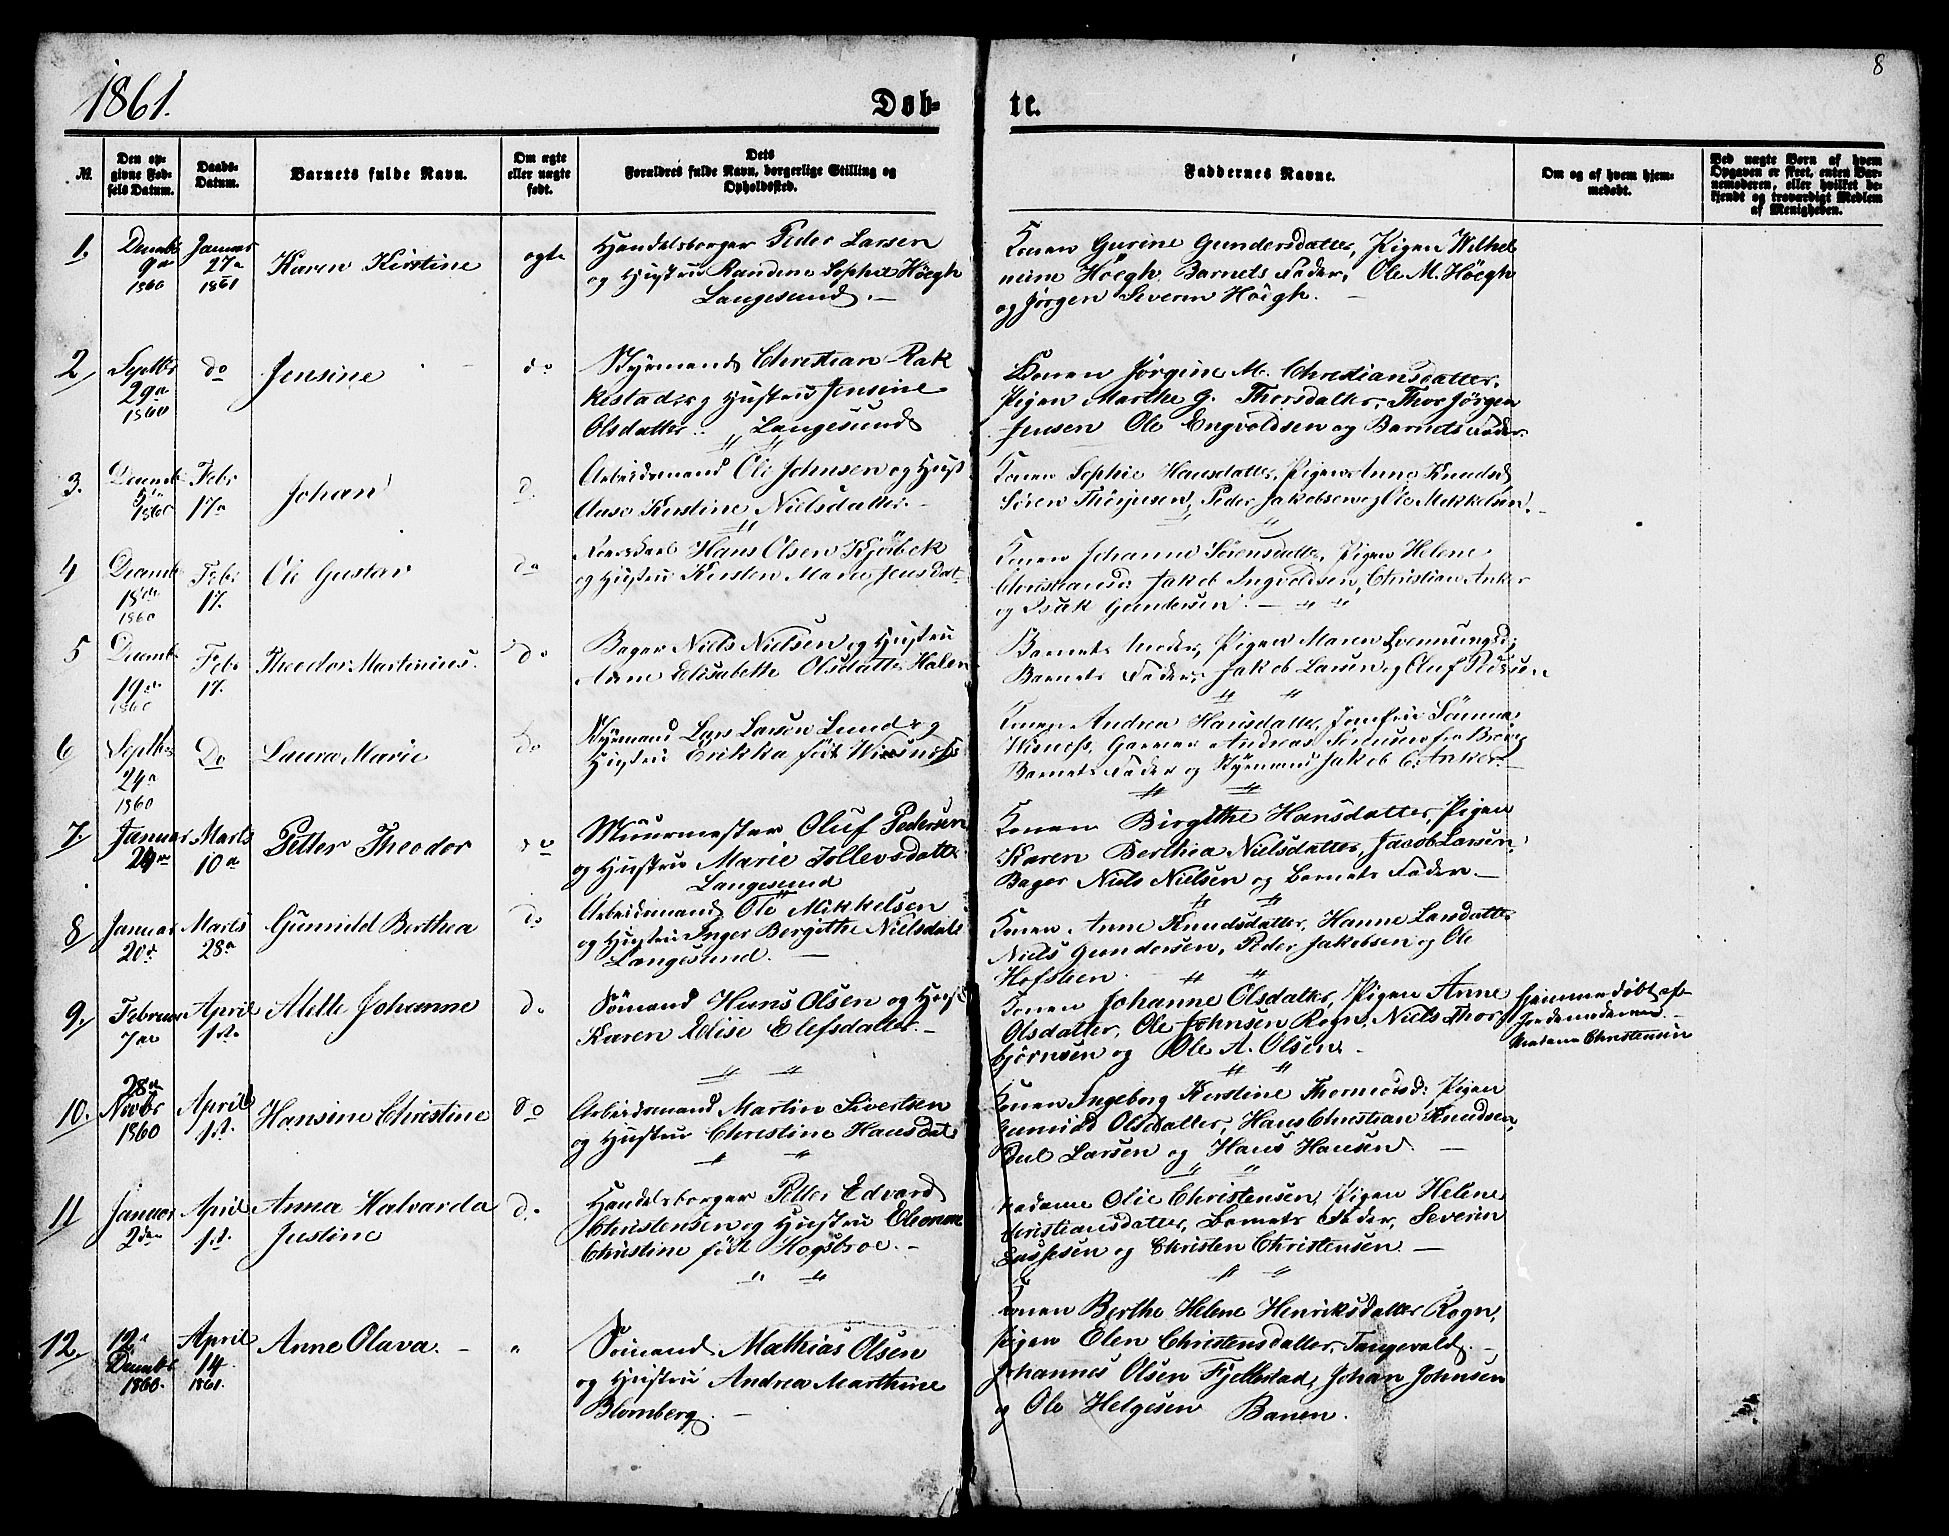 8
1861.
Døb-
te.
№.
Den op-
givne Fød-
sels Datum.
Daabs-
Datum.
Barnets fulde Navn.
Om ægte
eller uægte
født.
Dets
Forældres fulde Navn, borgerlige Stilling og
Opholdssted.
Faddernes Navne.
Om og af hvem hjem-
medøbt.
Ved uægte Børn af hvem
Opgaven er skeet, enten Bar-
nemoderen, eller hvilket be-
kjendt og troværdigt Medlem
af Menigheden.
1.
Decemb
9de
1860
Januar
27de
1861
Karen Kirstine
ægte
Handelsborger Peder Larsen
og Hustru Randine Sophie Höegh
Langesund. —
Konen Gurine Gundersdatter, Pigen Wilhel
mine Höegh, Barnets Fader, Ole M. Höegh
og Jørgen Severin Höigh. —
2
Septbr
29de
1860
do
Jensine
do
Styrmand Christian Rak
kestad og Hustru Jensine
Olsdatter. Langesund
Konen Jørgine M. Christiansdatter,
Pigen Marthe G. Thorsdatter, Thor Jørgen
Jensen Ole Engvoldsen og Barnets Fader.
3.
Decemb
1860
Febr
17de
Johan
d.
Arbeidsmand Ole Johnsen og Hust
Anse Kirstine Nielsdatter. —
Konen Sophie Hansdatter, Pigen Anne Knudsd
Søren Thorjusen, Peder Jakobsen og Ole Mikkelsen. —
4
Decemb
18de
1860
Febr
17.
Ole Gustav
do
Hans Olsen Kjörbek
og Hustru Kirsten Marie Jensdat
Konen Johanne Sørensdatter, Pigen Helene
Christiansd: Jakob Ingvoldsen, Christian Anker
og Isak Gundersen. —
5
Decemb
19de
1860
Febr
17.
Theodor Martinius.
do
Bager Niels Nielsen og Hustru
Anne Elisabeth Olsdatter Halen
Barnets Moder, Pigen Maren Svennungsd;
Barnets Fader, Jakob Larsen og Oluf Pedersen.
6
Septbr
24de
1860
Do
Laura Marie
do
Styrmand Lars Larsen Lund og
Hustru Erikka født Wiesness
Konen Andrea Hansdatter, Jomfru
Wisness, Garver Andreas
Barnets Fader og Styrmand Jakob C. Anker
7.
Januar
24de
Marts
10de
Petter Theodor
do
Muurmester Oluf Pedersen
og Hustru Marie Tollevsdatter
Langesund
Konen Birgithe Hansdatter, Pigen
Karen Berthea Nielsdatter, Jacob Larsen,
Bager Niels Nielsen og Barnets Fader. —
8
Januar
20de
Marts
28de
Gunnild Berthea
do
Arbeidsmand Ole Mikkelsen
og Hustru Inger Bergithe Nielsdatt
Langesund. —
Konen Anne Knudsdatter, Hanne Larsdatter
Niels Gundersen, Peder Jakobsen og Ole
Hofsteen.
9.
Februar
7de
April
1ste
Alette Johanne
do
Sømand Hans Olsen og Hust
Karen Elise Elefsdatter. —
Konen Johanne Olsdatter, Pigen Anne
Olsdatter, Ole Johnsen Rogn, Niels Thor
bjørnsen og Ole A. Olsen. —
hjemmedøbt af
Jordemoderen
Madame Christensen
10.
28de
Novbr
1860
April
1st.
Hansine Christine
do
Arbeidsmand Martin Sivertsen
og Hustru Christine Hansdat
Konen Ingeborg Kirstine Thormodsd: Pigen
Gunild Olsdatter, Hans Christian Knudsen,
Larsen og Hans Hansen. —
11
Januar
2den
April
1st.
Anna Halvarda
Justine
do
Handelsborger Petter Edvard
Christensen og Hustru Eleonore
Christine født Hogsbroe. —
Madame Olie Christensen, Pigen Helene
Christiansdatter, Barnets Fader, Severin
Lassesen og Christen Christensen. —
12.
12te
Decembr
1860.
April
14
1861.
Anne Olava. —
"
Sömand Mathias Olsen
og Hustru Andrea Marthine
Blomberg. —
Konen Berthe Helene Henriksdatter Rogn,
Pigen Elen Christensdatter, Tangevald, —
Johannes Olsen Fjellestad, Johan Johnsen
og Ole Helgesen Banen.